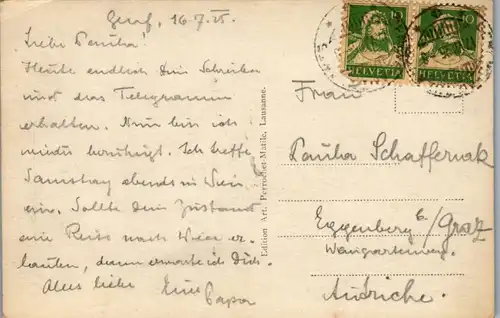 Genf, 16.7.25.
Liebe Pauha!
Heute endlich Dein Schreiben
und das Telegramm
erhalten. Nun bin ich
wieder beruhigt. Ich treffe
Samstag abends in Wien
ein. Sollte Dein Zustand
eine Reise nach Wien er-
lauben, dann erwarte ich Dich.
Alles liebe
Papa
Edition Art. Perrochet-Matile, Lausanne.
10 10
HELVETIA HELVETIA
Frau
Pauha Schaffernak
Eggenberg b/Graz